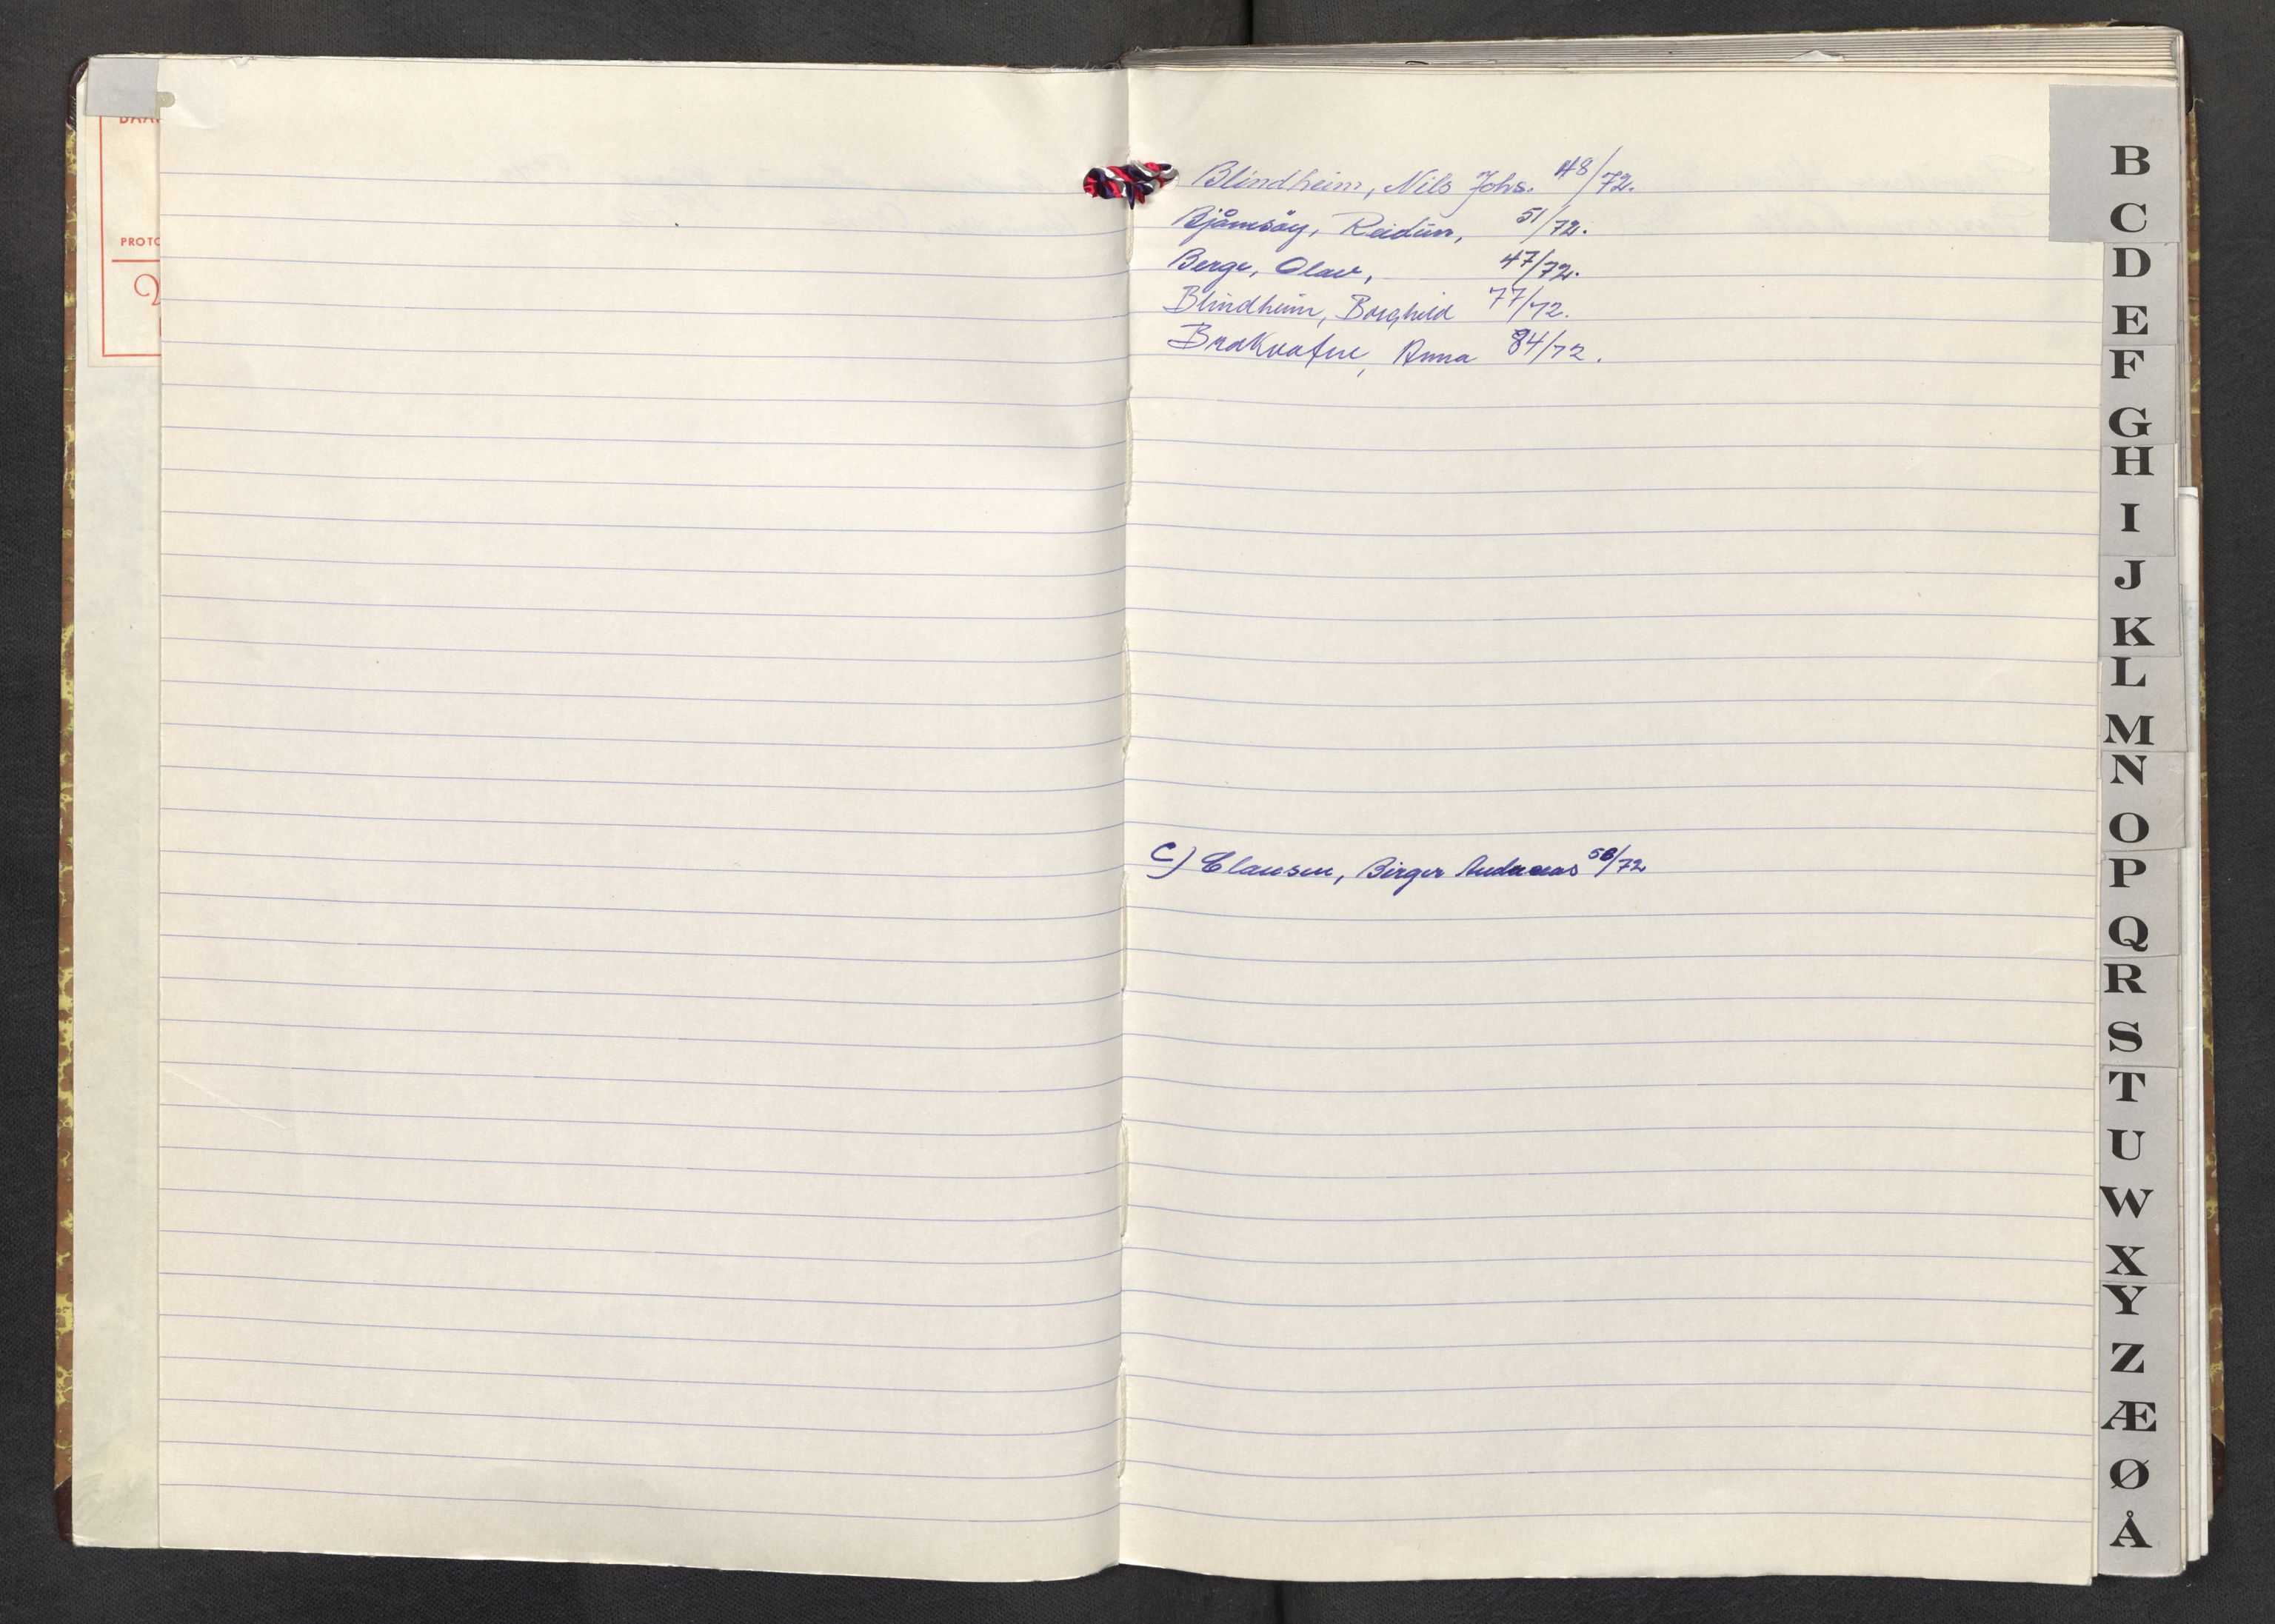 PROTO
Blindheim, Nils Johs. 48/72.
Bjåmsöy, Reidun, 51/72.
Berge, Olav, 47/72.
Blindheim, Borghild 77/72.
Brakvatne, Anna 84/72.
C) Clausen, Birger Andreas 56/72
B
C
D
E
F
G
H
I
J
K
L
M
N
O
P
Q
R
S
T
U
W
X
Y
Z
Æ
Ø
Å